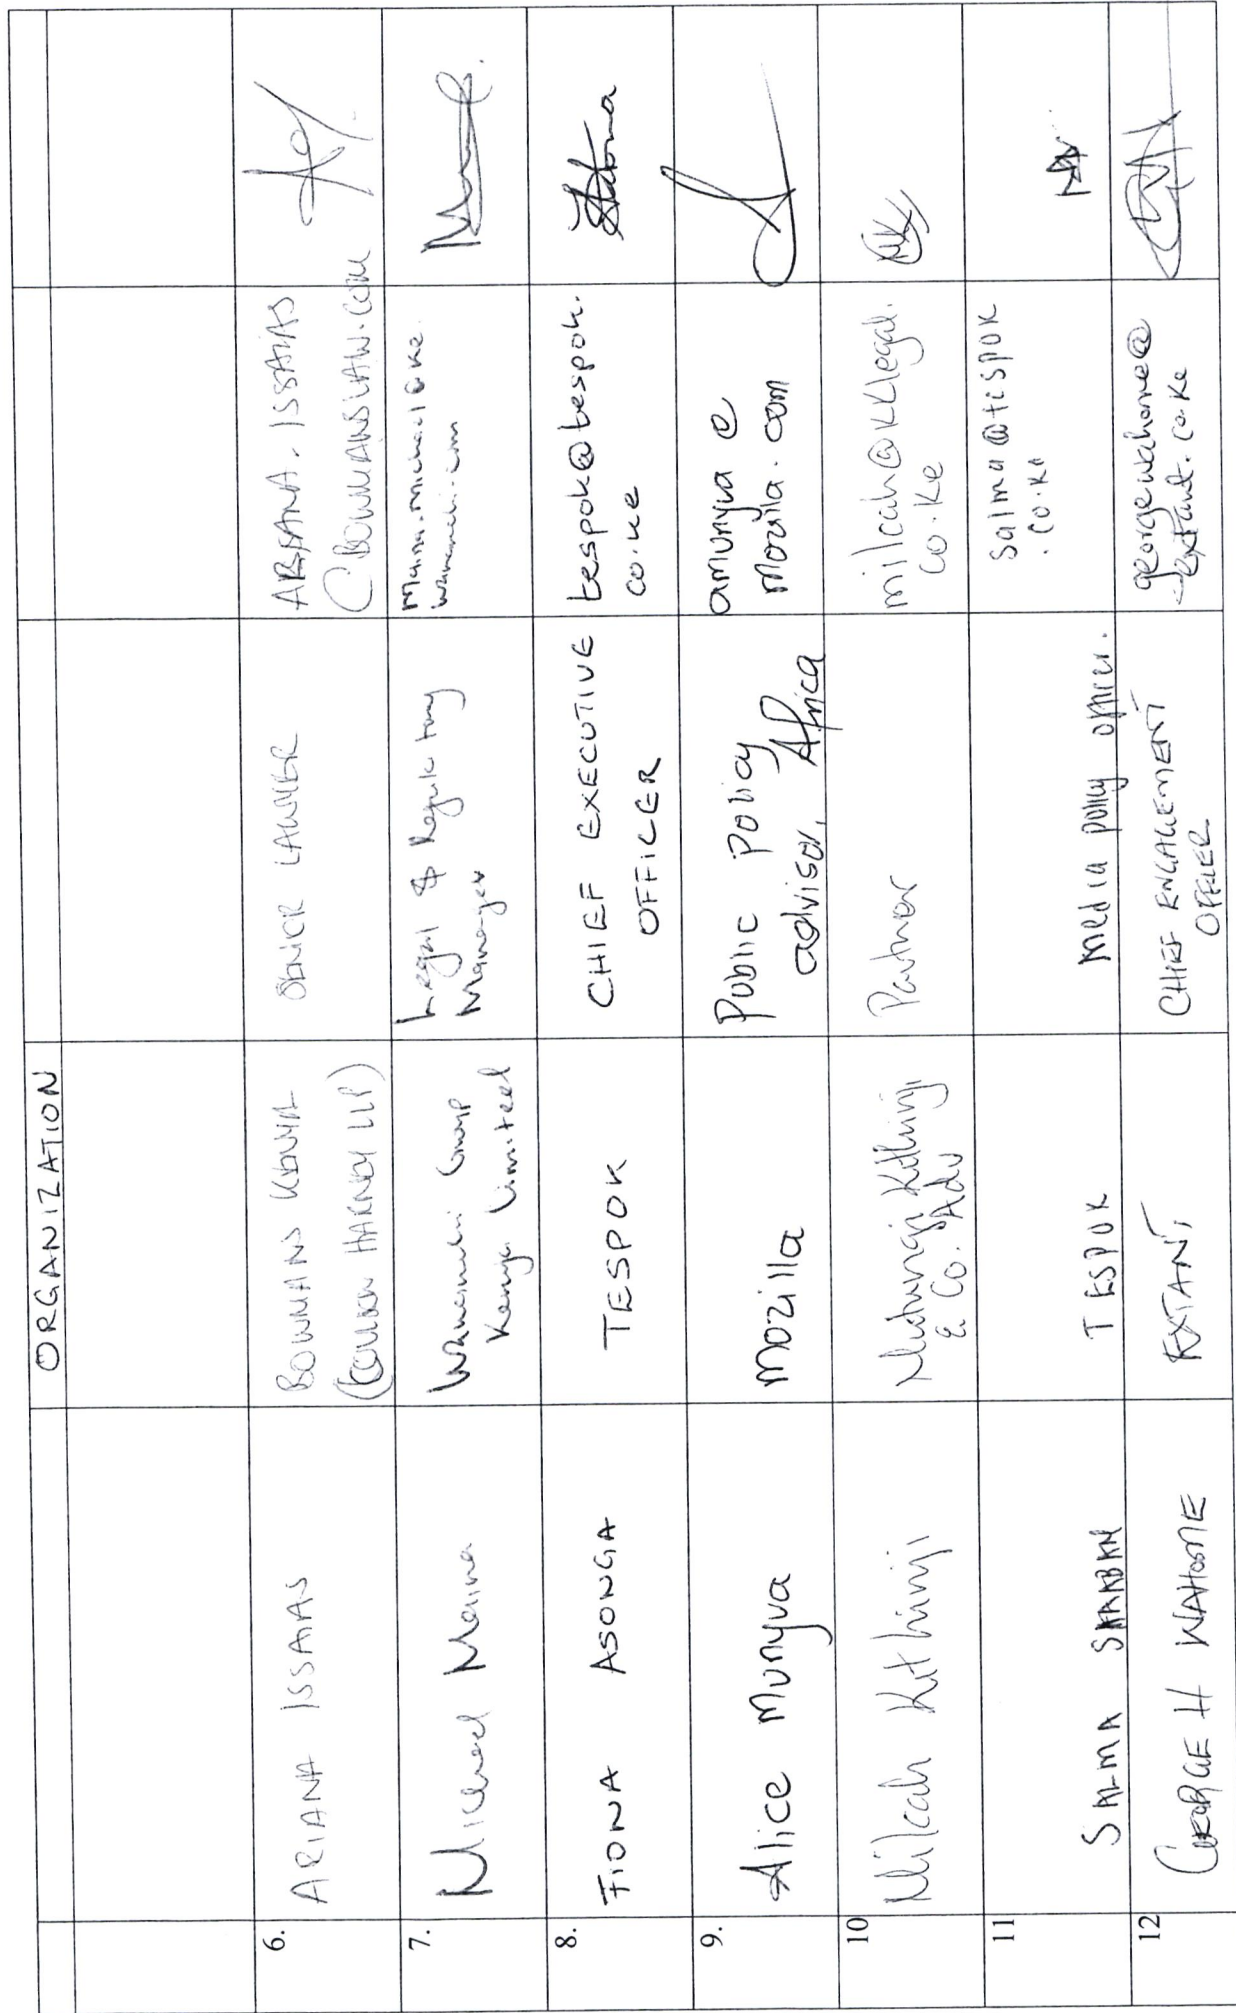 ORGANIZATION
6.
ARIANA ISSAIAS
BOWMANS KENYA
(COULSON HARNEY LLP)
SENIOR LAWYER
ARIANA.ISSAIAS
@BOWMANSLAW.COM
7.
Michael Maina
Wananchi Group
Kenya Limited
Legal & Regulatory
Manager
Maina.Michael@ke.
wananchi.com
8.
FIONA ASONGA
TESPOK
CHIEF EXECUTIVE
OFFICER
tespok@tespok.
co.ke
9.
Alice Munyua
mozilla
Public Policy
advisor, Africa
amunyua@
mozilla.com
10
Milcah Kithinji
Muthungi Kithinji
& Co. Adv
Partner
milcah@kklegal.
co.ke
11
SALMA
TESPOK
Media policy officer.
salma@tespok
.co.ke
12
GEORGE H WAHOME
EXTANT
CHIEF ENGAGEMENT
OFFICER
georgewahome@
extant.co.ke